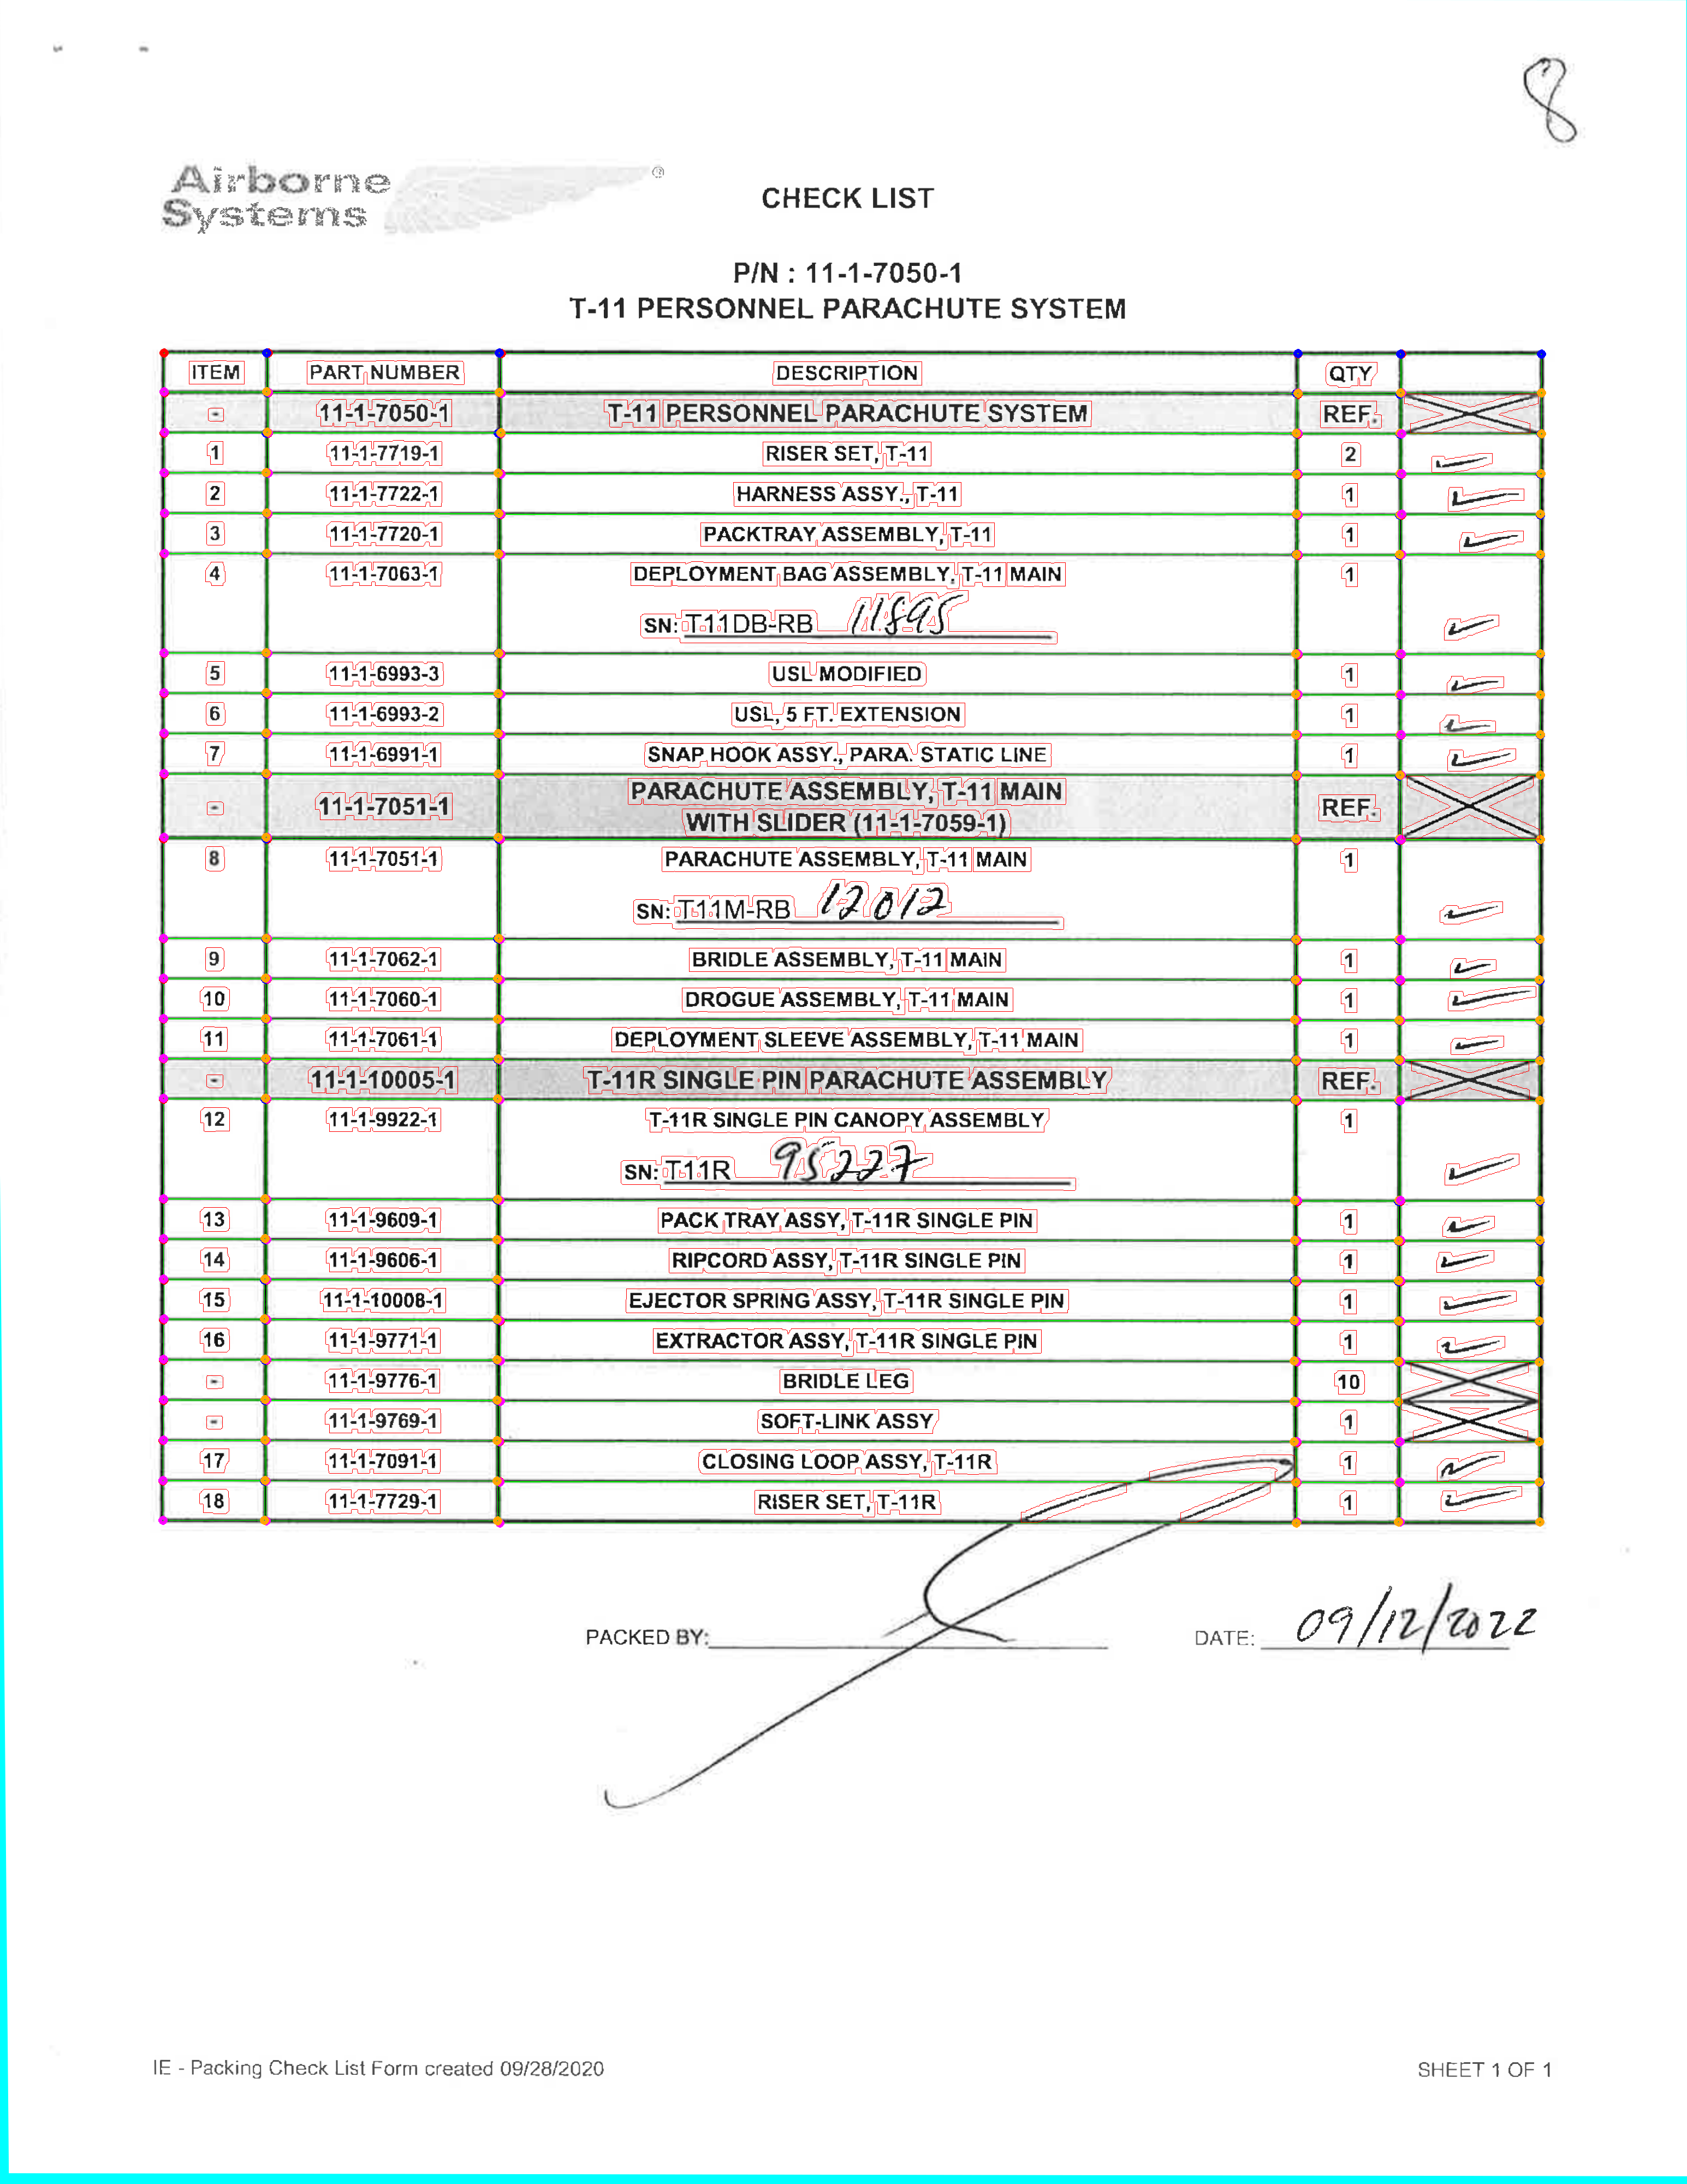 8
Airborne
Systems ®
CHECK LIST
P/N : 11-1-7050-1
T-11 PERSONNEL PARACHUTE SYSTEM
ITEM PART NUMBER DESCRIPTION QTY
- 11-1-7050-1 T-11 PERSONNEL PARACHUTE SYSTEM REF.
1 11-1-7719-1 RISER SET, T-11 2
2 11-1-7722-1 HARNESS ASSY., T-11 1
3 11-1-7720-1 PACKTRAY ASSEMBLY, T-11 1
4 11-1-7063-1 DEPLOYMENT BAG ASSEMBLY, T-11 MAIN 1
SN: T11DB-RB 11895
5 11-1-6993-3 USL MODIFIED 1
6 11-1-6993-2 USL, 5 FT. EXTENSION 1
7 11-1-6991-1 SNAP HOOK ASSY., PARA. STATIC LINE 1
- 11-1-7051-1 PARACHUTE ASSEMBLY, T-11 MAIN REF.
WITH SLIDER (11-1-7059-1)
8 11-1-7051-1 PARACHUTE ASSEMBLY, T-11 MAIN 1
SN: T11M-RB 12012
9 11-1-7062-1 BRIDLE ASSEMBLY, T-11 MAIN 1
10 11-1-7060-1 DROGUE ASSEMBLY, T-11 MAIN 1
11 11-1-7061-1 DEPLOYMENT SLEEVE ASSEMBLY, T-11 MAIN 1
- 11-1-10005-1 T-11R SINGLE PIN PARACHUTE ASSEMBLY REF.
12 11-1-9922-1 T-11R SINGLE PIN CANOPY ASSEMBLY 1
SN: T11R 95227
13 11-1-9609-1 PACK TRAY ASSY, T-11R SINGLE PIN 1
14 11-1-9606-1 RIPCORD ASSY, T-11R SINGLE PIN 1
15 11-1-10008-1 EJECTOR SPRING ASSY, T-11R SINGLE PIN 1
16 11-1-9771-1 EXTRACTOR ASSY, T-11R SINGLE PIN 1
- 11-1-9776-1 BRIDLE LEG 10
- 11-1-9769-1 SOFT-LINK ASSY 1
17 11-1-7091-1 CLOSING LOOP ASSY, T-11R 1
18 11-1-7729-1 RISER SET, T-11R 1
PACKED BY: DATE: 09/12/2022
IE - Packing Check List Form created 09/28/2020 SHEET 1 OF 1